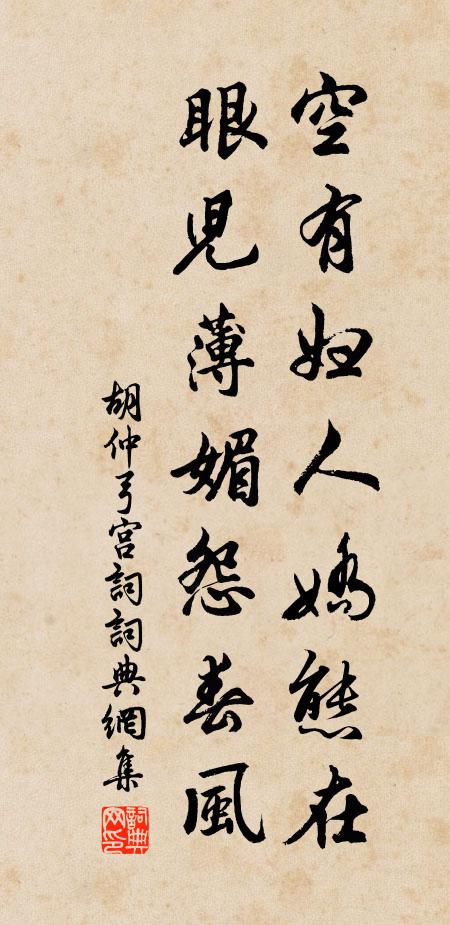 空有妇人嬌態在
眼児薄媚怨春風
胡仲弓宮詞詞典網集
詞典网印